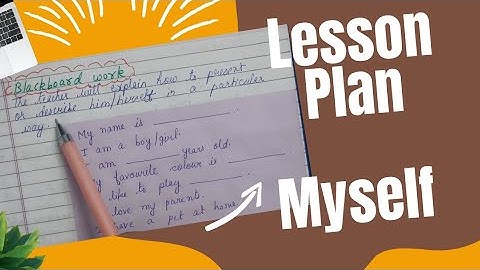 Blackboard work
The teacher will explain how to present
or describe him/herself in a particular
way.
My name is
I am a boy/girl.
I am years old.
My favourite colour is
like to play
love my parent.
have a pet at home
Lesson
Plan
Myself